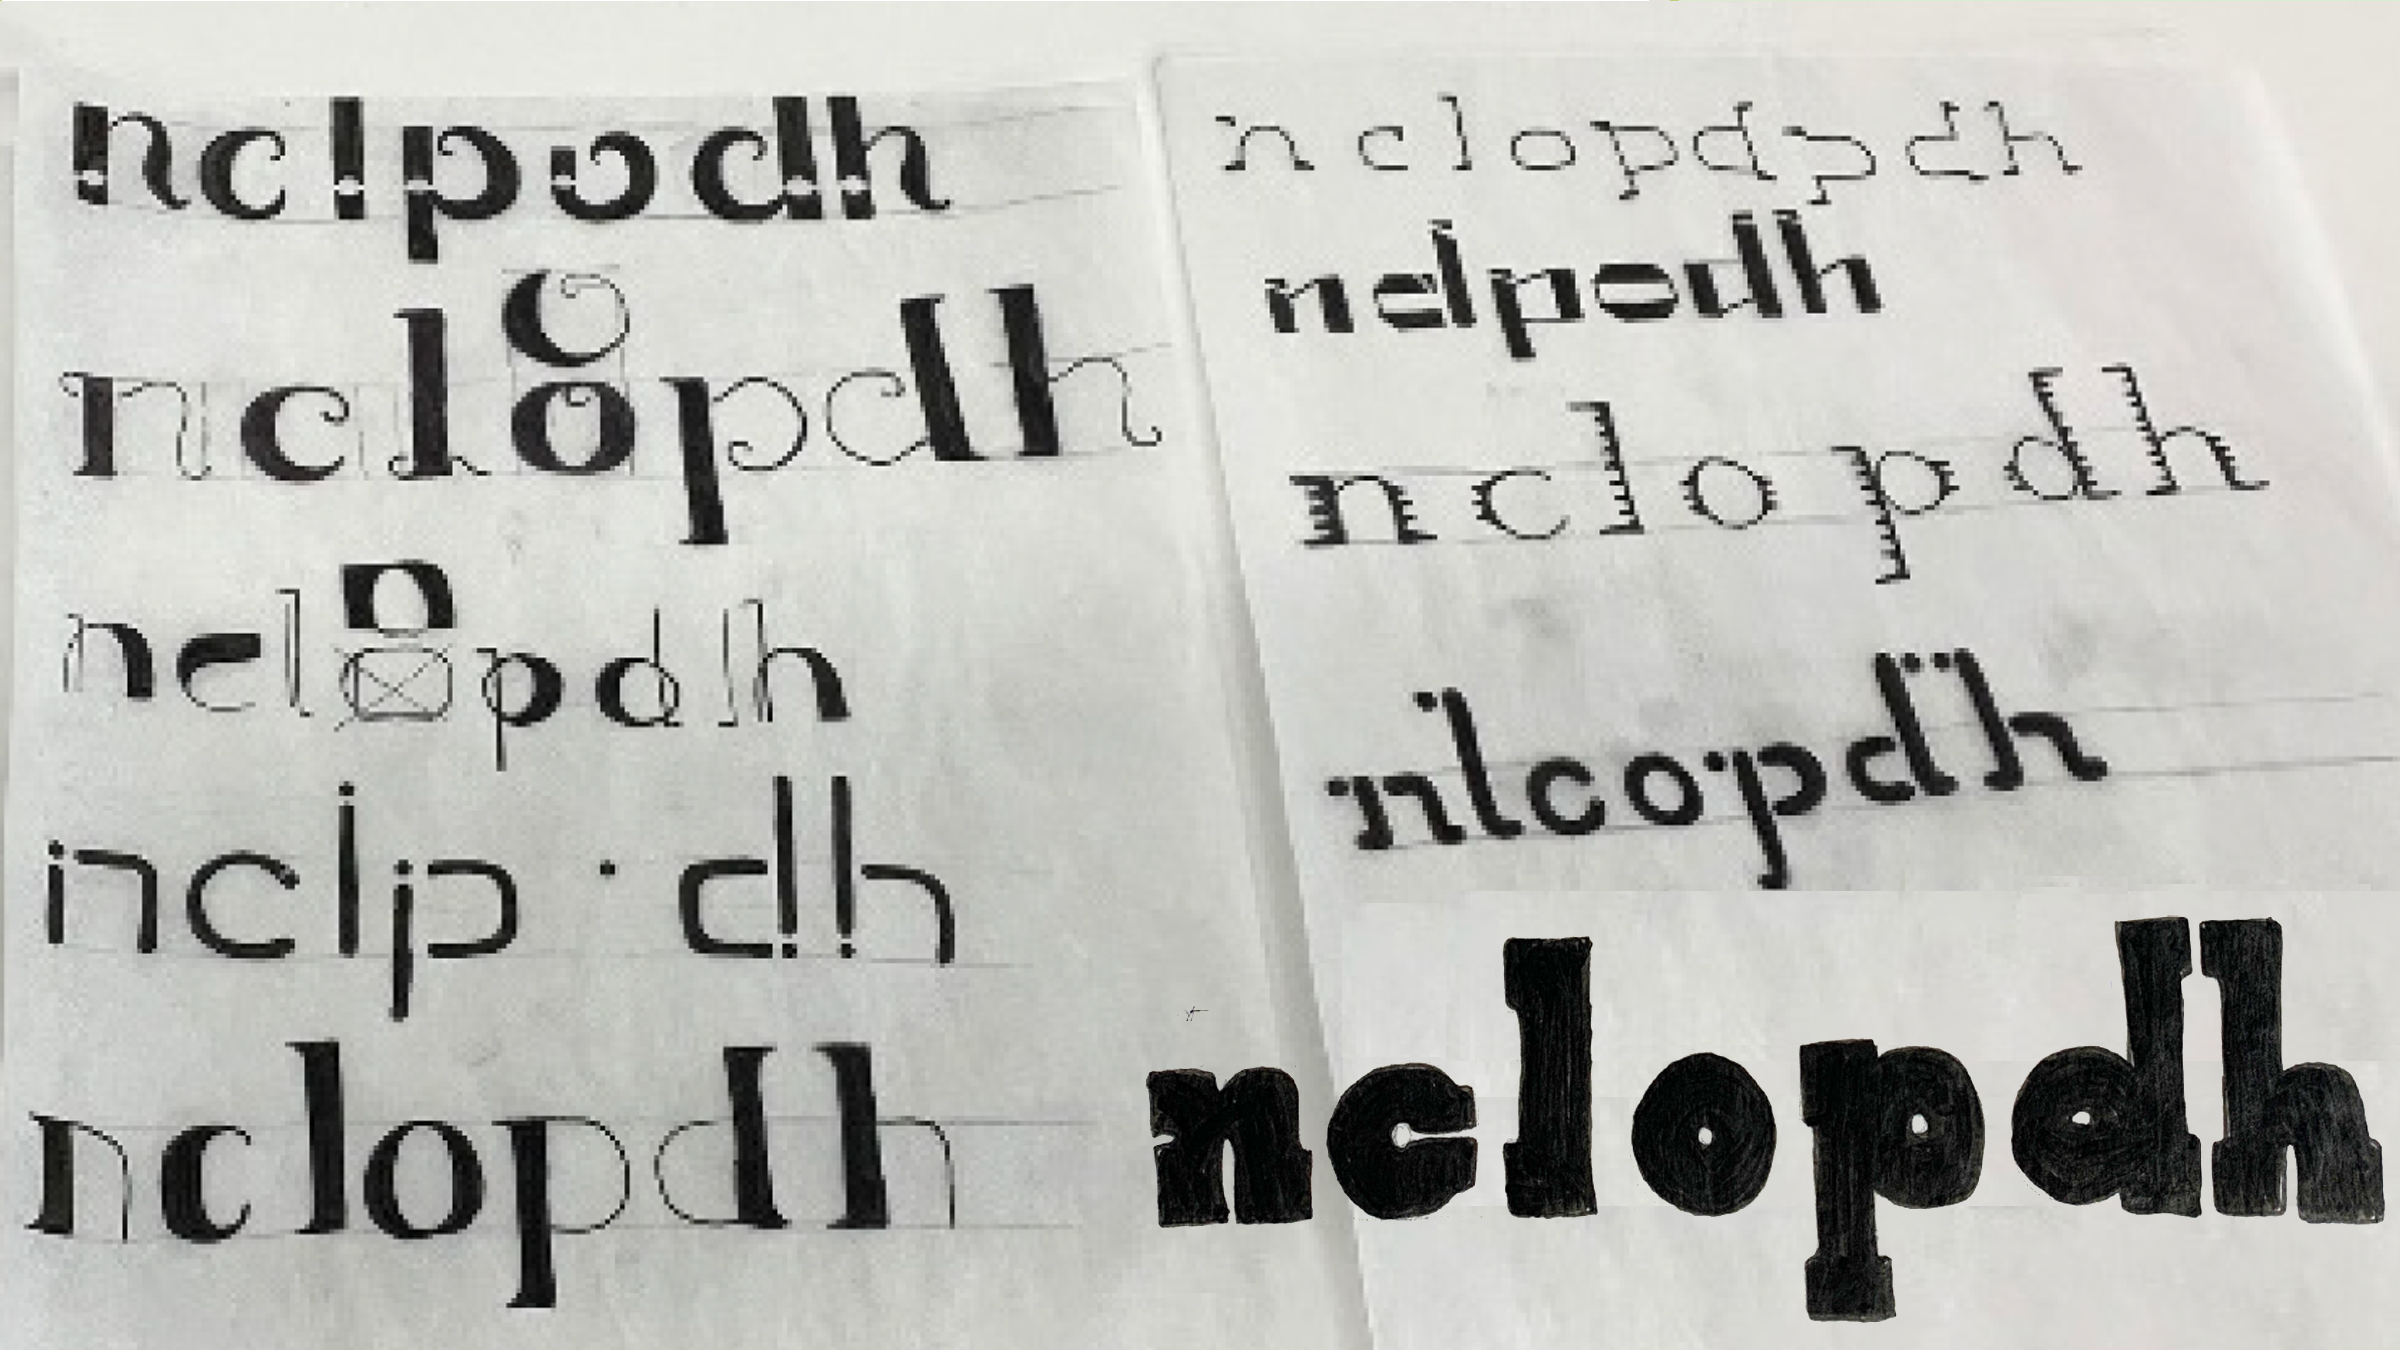 nclpodh
o
nclopdh
o
nclopdlh
nclp·dh
nclopdh
nclopdpdh
nclpodh
nclopdh
nlcopdh
nclopdh